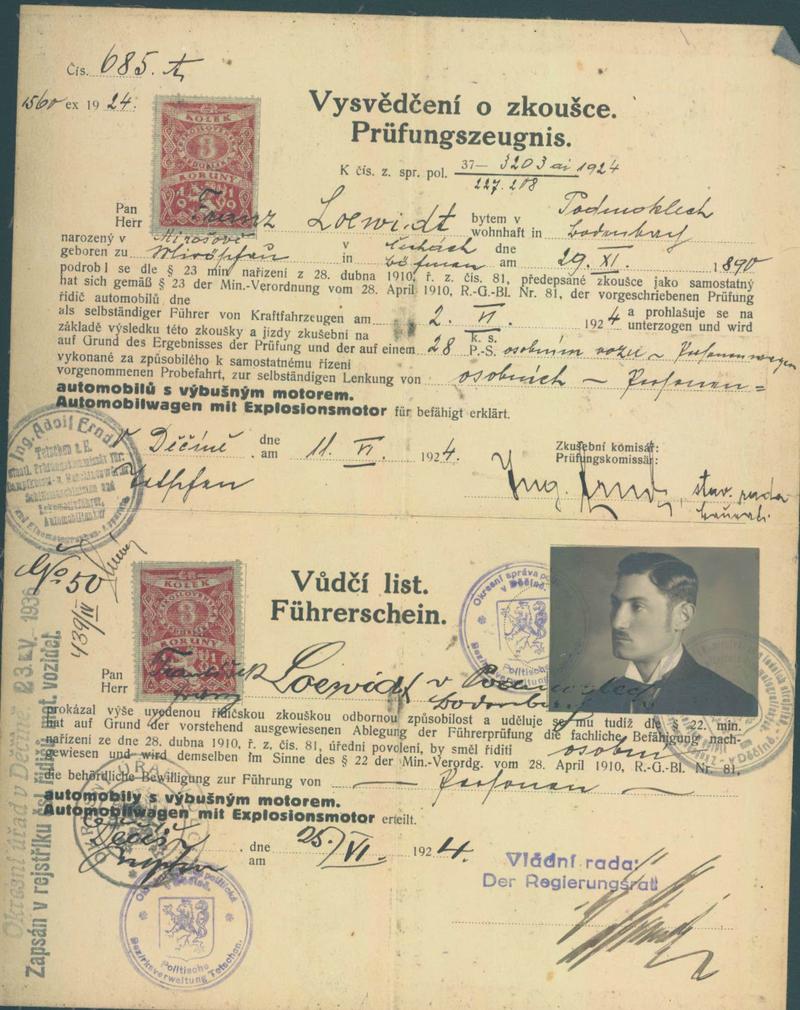 Čís. 685.
1560 ex 1924.
KOLEK
3
KORUNY
1919
Vysvědčení o zkoušce.
Prüfungszeugnis.
K čís. z. spr. pol. 37— 3203 ai 1924
227.208
Pan
Herr Franz Loewidt bytem v Podmoklech
wohnhaft in Bodenbach
narozený v Mirošově v Čechách dne
geboren zu in Böhmen am 29. XI. 1890
podrobil se dle § 23 min nařízení z 28. dubna 1910, ř. z. čís. 81, předepsané zkoušce jako samostatný
hat sich gemäß § 23 der Min.-Verordnung vom 28. April 1910, R.-G.-Bl. Nr. 81, der vorgeschriebenen Prüfung
řidič automobilů dne
als selbständiger Führer von Kraftfahrzeugen am 2. VI. 1924 a prohlašuje se na
unterzogen und wird
základě výsledku této zkoušky a jízdy zkušební na
auf Grund des Ergebnisses der Prüfung und der auf einem 28 k. s.
P.-S. osobním vozu – Personenwagen
vykonané za způsobilého k samostatnému řízení
vorgenommenen Probefahrt, zur selbständigen Lenkung von osobních – Personen=
automobilů s výbušným motorem.
Automobilwagen mit Explosionsmotor für befähigt erklärt.
Ing. Adolf Ernd
Tetschen a. E.
V Děčíně dne
am 11. VI. 1924.
Tetschen
Zkušební komisař:
Prüfungskommissär:
Ing. Ernd, stav. rada
No 50
439/IV
KOLEK
3
KORUNY
Vůdčí list.
Führerschein.
Okresní správa politická
v Děčíně.
Politische
Pan
Herr František Loewidt v Podmoklech
Franz Bodenbach
prokázal výše uvedenou řidičskou zkouškou odbornou způsobilost a uděluje se mu tudíž dle § 22. min.
hat auf Grund der vorstehend ausgewiesenen Ablegung der Führerprüfung die fachliche Befähigung nach-
nařízení ze dne 28. dubna 1910, ř. z. čís. 81, úřední povolení, by směl říditi osobní
gewiesen und wird demselben im Sinne des § 22 der Min.-Verordg. vom 28. April 1910, R.-G.-Bl. Nr. 81,
die behördliche Bewilligung zur Führung von — Personen —
automobily s výbušným motorem.
Automobilwagen mit Explosionsmotor erteilt.
dne
am 25/VI. 1924.
Vládní rada:
Der Regierungsrat
Okresní správa politická
v Děčíně.
Politische
Bezirksverwaltung Tetschen.
Okresní úřad v Děčíně 23. V. 1936
Zapsán v rejstříku čsl. řidičů mot. vozidel.